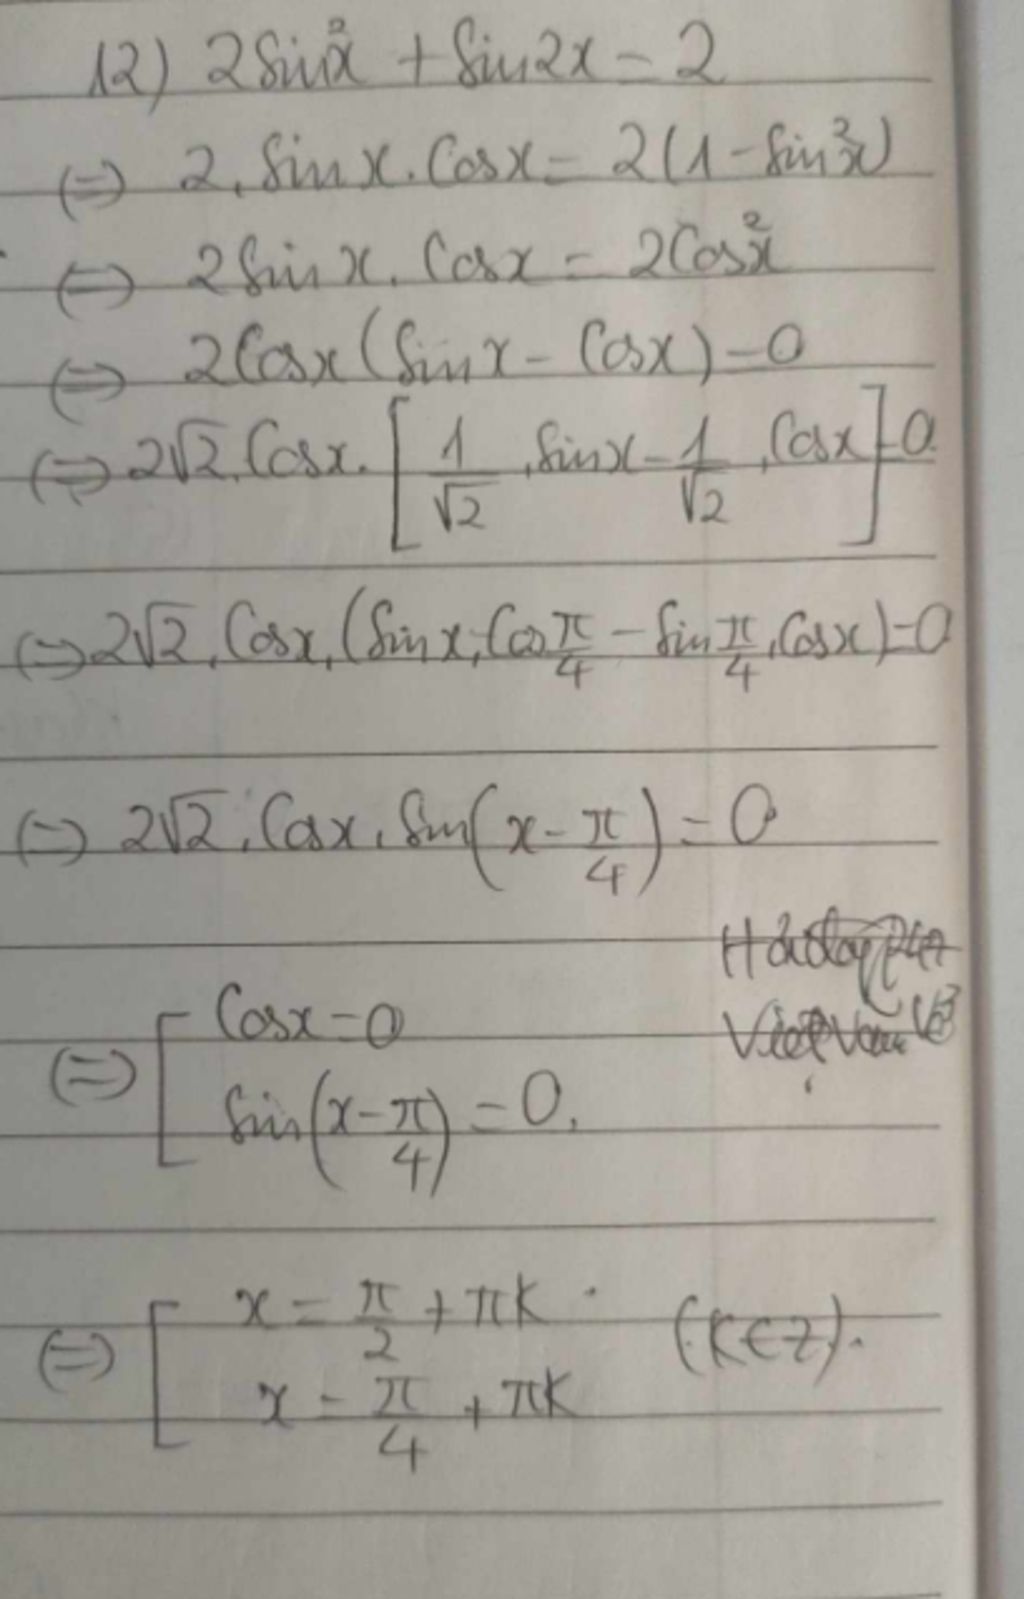 12) 2Sin²x + Sin2x = 2
(=) 2.Sinx.Cosx = 2(1-Sin²x)
(=) 2Sinx.Cosx = 2Cos²x
(=) 2Cosx(Sinx - Cosx) = 0
(=) 2√2.Cosx.[1/√2.Sinx - 1/√2.Cosx] = 0
(=) 2√2.Cosx.(Sinx.Cosπ/4 - Sinπ/4.Cosx) = 0
(=) 2√2.Cosx.Sin(x - π/4) = 0
(=) [Cosx = 0
Sin(x - π/4) = 0.
(=) [x = π/2 + πk (k∈Z).
x = π/4 + πk